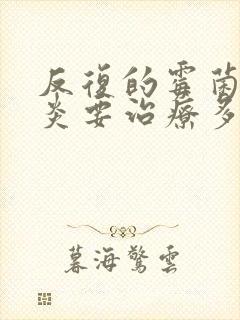 反復的霉菌
炎要治療多
暮海驚雲